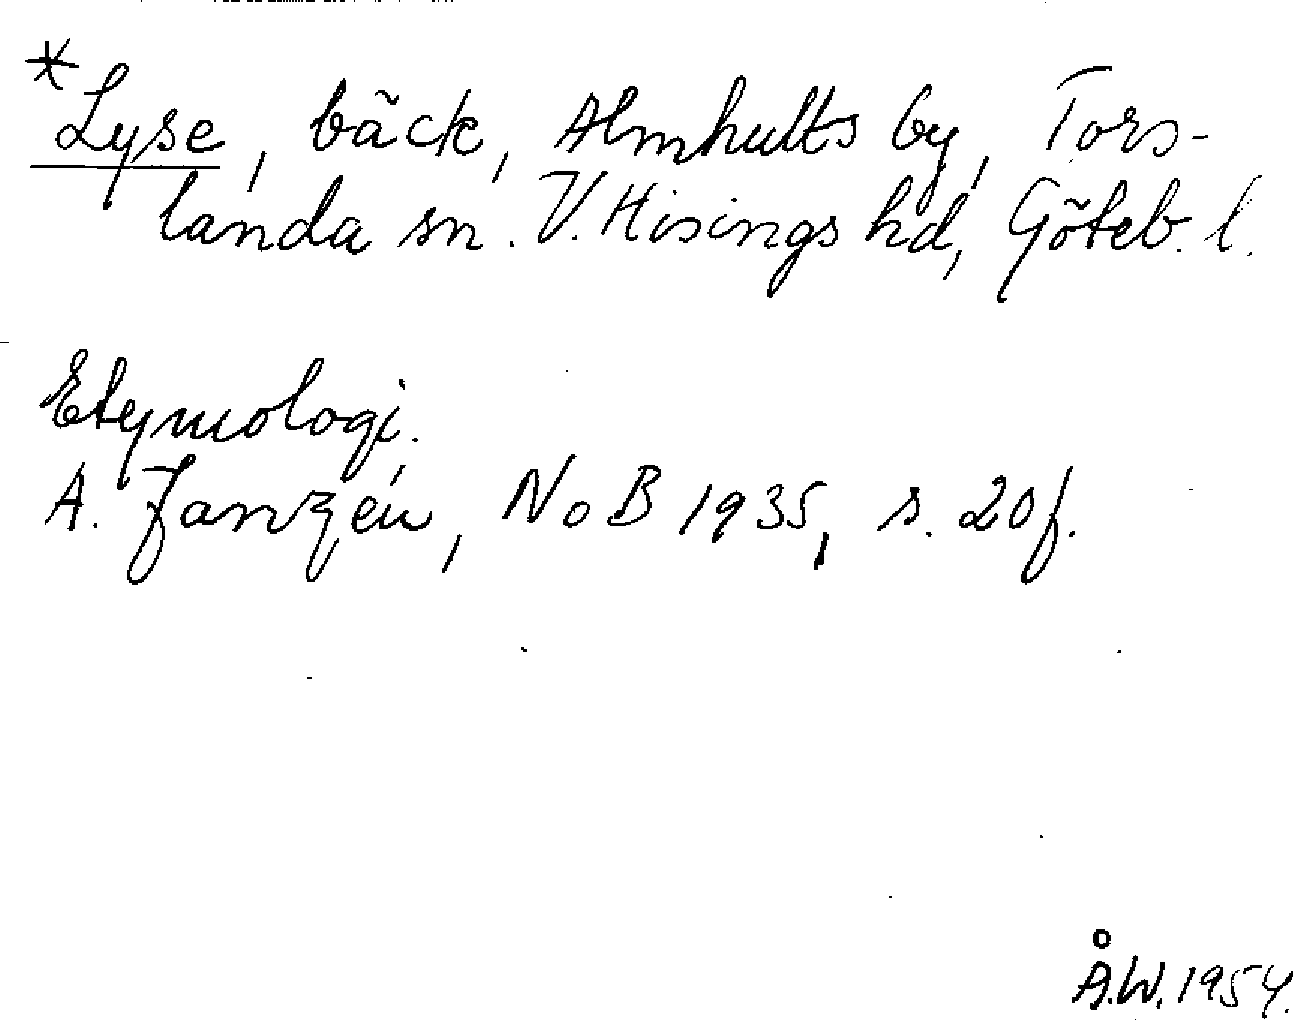 *Lyse, bäck, Almhults by, Tors-
landa sn. V. Hisings hd, Göteb. l.
Etymologi.
A. Janzén, NoB 1935, s. 20f.
Å.W. 1954.